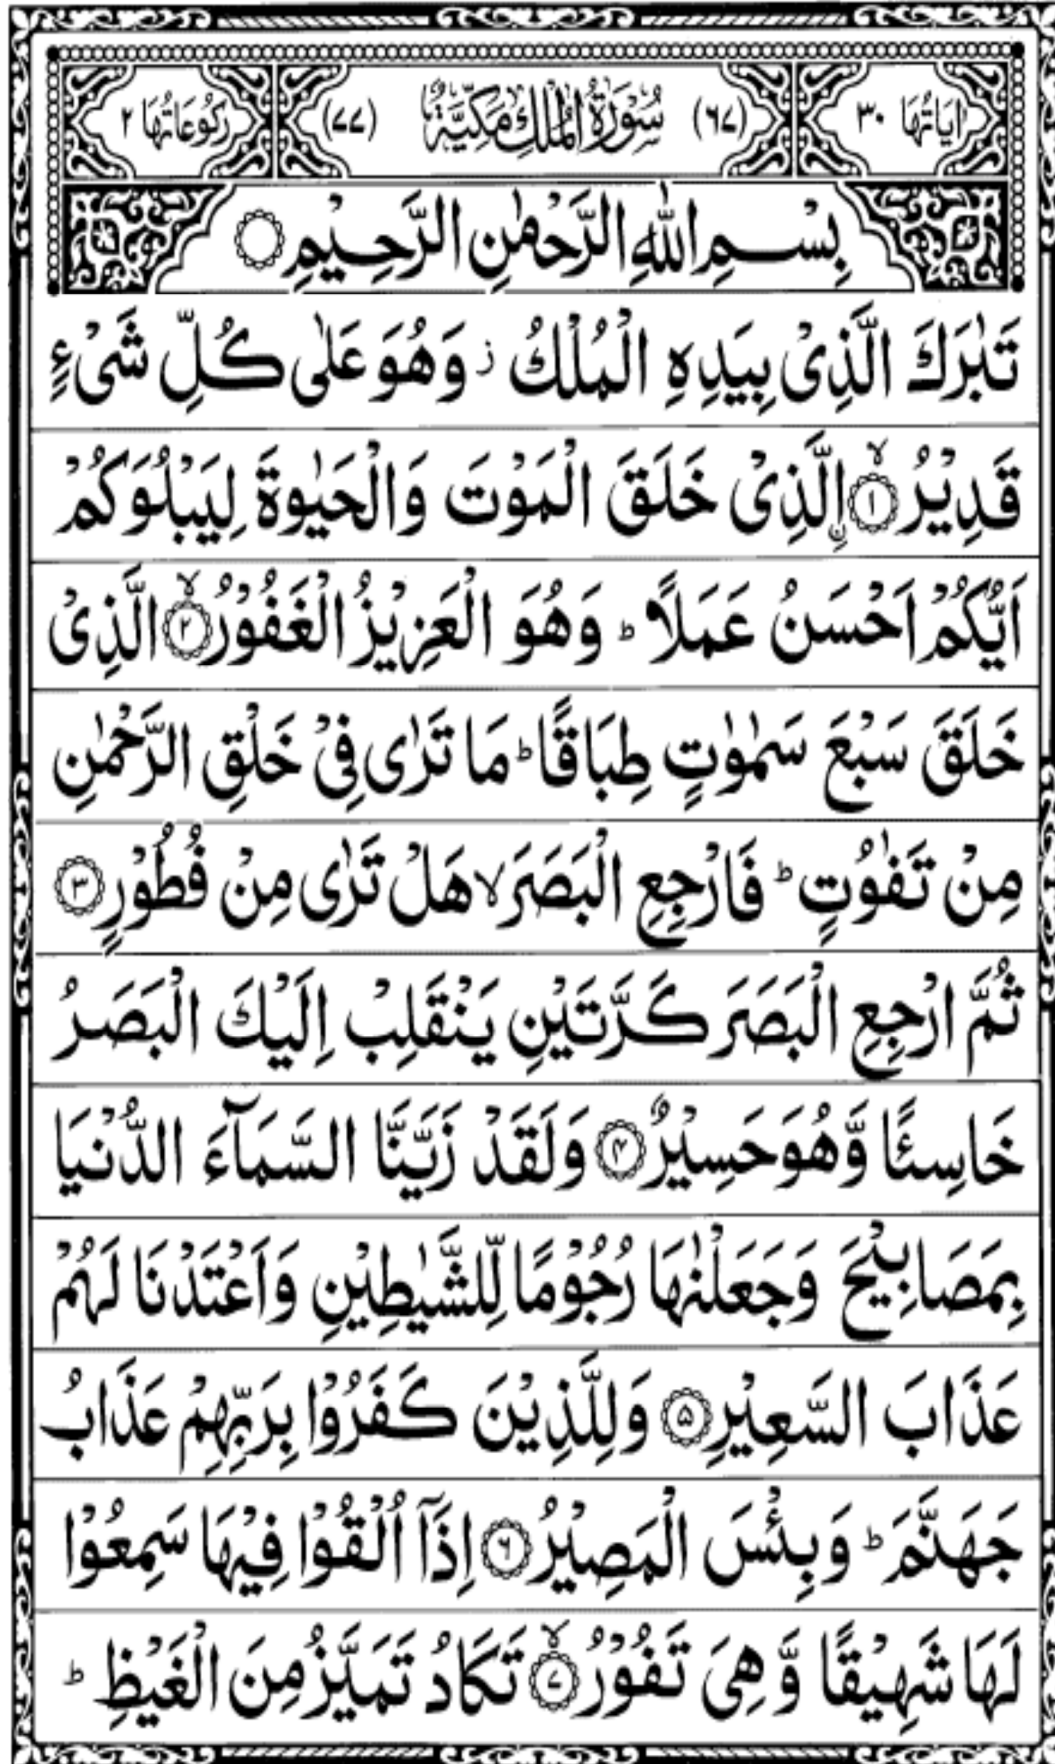 اٰيَاتُهَا ٣٠ (٦٧) سُوْرَةُ الْمُلْكِ مَكِّيَّةٌ (٧٧) رُكُوْعَاتُهَا ٢
بِسْمِ اللّٰهِ الرَّحْمٰنِ الرَّحِيْمِ
تَبٰرَكَ الَّذِىْ بِيَدِهِ الْمُلْكُ ز وَهُوَ عَلٰى كُلِّ شَىْءٍ
قَدِيْرُ ۙ﴿١﴾ اۨلَّذِىْ خَلَقَ الْمَوْتَ وَالْحَيٰوةَ لِيَبْلُوَكُمْ
اَيُّكُمْ اَحْسَنُ عَمَلًا ؕ وَهُوَ الْعَزِيْزُ الْغَفُوْرُ ۙ﴿٢﴾ الَّذِىْ
خَلَقَ سَبْعَ سَمٰوٰتٍ طِبَاقًا ؕ مَا تَرٰى فِىْ خَلْقِ الرَّحْمٰنِ
مِنْ تَفٰوُتٍ ؕ فَارْجِعِ الْبَصَرَ ۙ هَلْ تَرٰى مِنْ فُطُوْرٍ ﴿٣﴾
ثُمَّ ارْجِعِ الْبَصَرَ كَرَّتَيْنِ يَنْقَلِبْ اِلَيْكَ الْبَصَرُ
خَاسِئًا وَّهُوَ حَسِيْرٌ ﴿۴﴾ وَلَقَدْ زَيَّنَّا السَّمَآءَ الدُّنْيَا
بِمَصَابِيْحَ وَجَعَلْنٰهَا رُجُوْمًا لِّلشَّيٰطِيْنِ وَاَعْتَدْنَا لَهُمْ
عَذَابَ السَّعِيْرِ ﴿۵﴾ وَلِلَّذِيْنَ كَفَرُوْا بِرَبِّهِمْ عَذَابُ
جَهَنَّمَ ؕ وَبِئْسَ الْمَصِيْرُ ﴿۶﴾ اِذَآ اُلْقُوْا فِيْهَا سَمِعُوْا
لَهَا شَهِيْقًا وَّهِىَ تَفُوْرُ ۙ﴿۷﴾ تَكَادُ تَمَيَّزُ مِنَ الْغَيْظِ ؕ